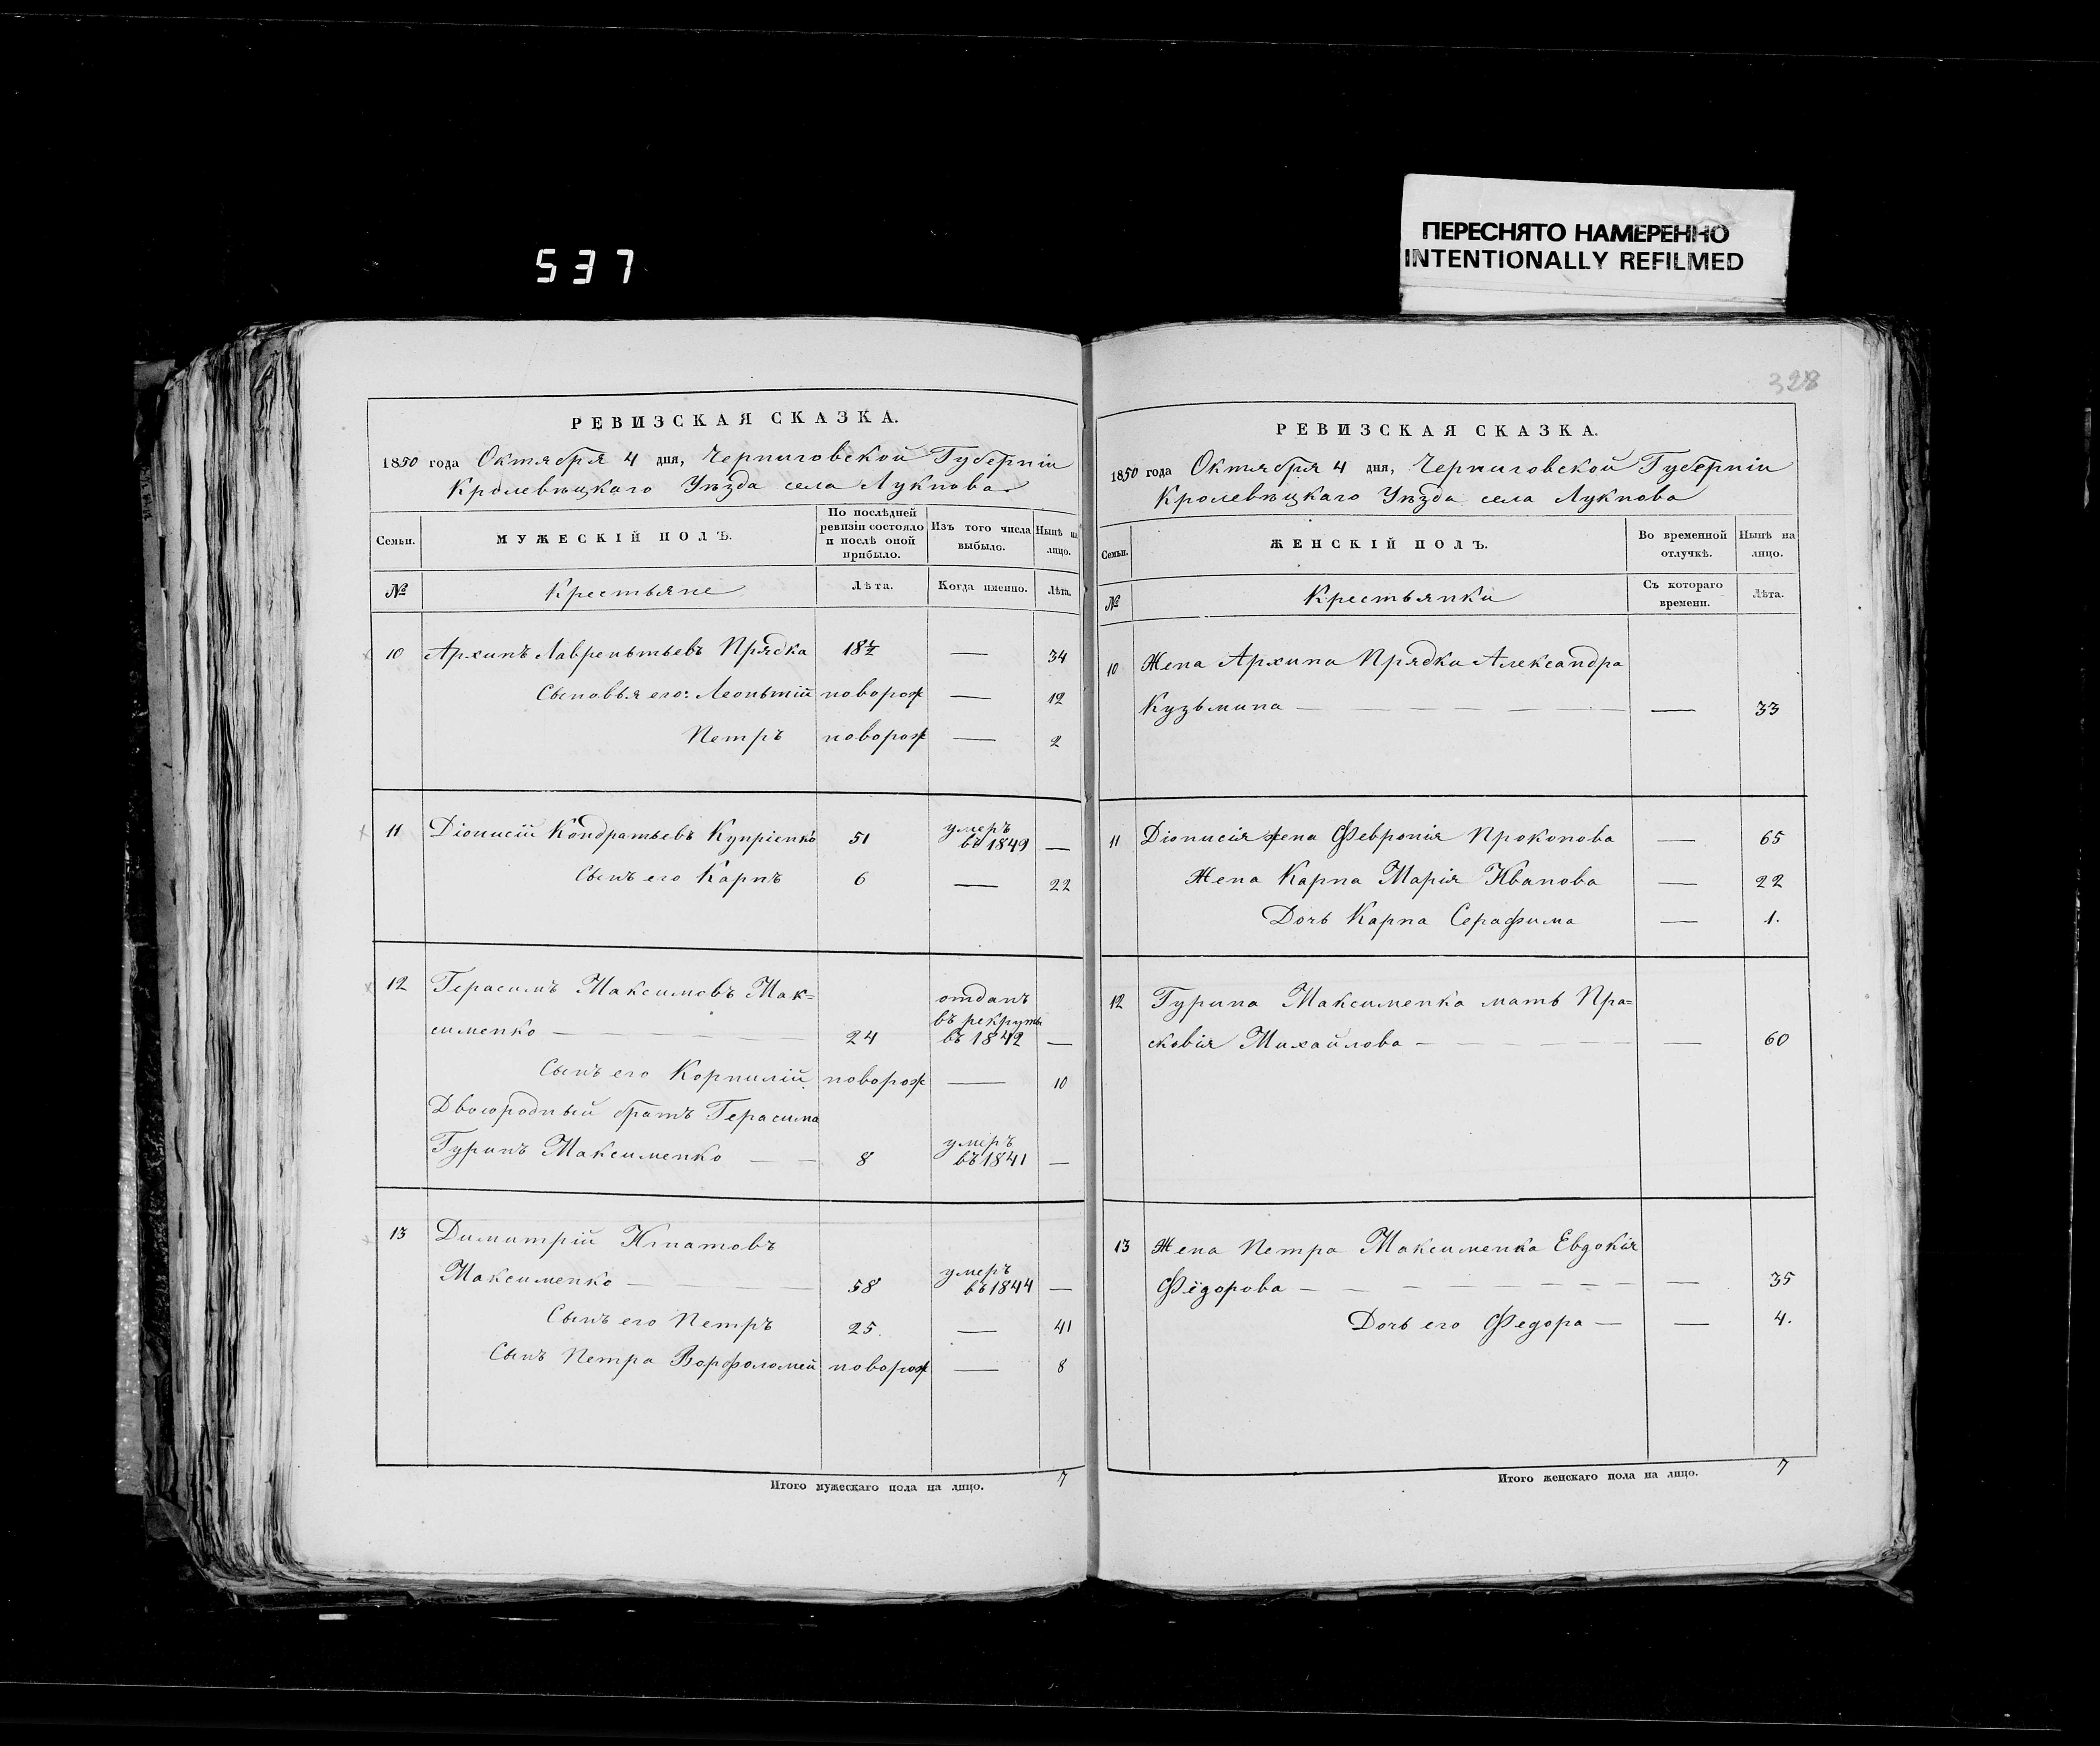 ПЕРЕСНЯТО НАМЕРЕННО
INTENTIONALLY REFILMED
537
РЕВИЗСКАЯ СКАЗКА.
1850 года Октября 4 дня, Черниговской Губерніи
Кролевецкаго Уѣзда села Лукнова
Семьи. МУЖЕСКІЙ ПОЛЪ. По послѣдней ревизіи состояло и послѣ оной прибыло. Изъ того числа выбыло. Нынѣ на лицо.
№ Крестьяне Лѣта. Когда именно. Лѣта.
10 Архипъ Лаврентьевъ Прядка 18½ — 34
Сыновья его: Леонтій новорож — 12
Петръ новорож — 2
11 Діонисій Кондратьевъ Купріенко 51 умеръ въ 1849 —
Сынъ его Карпъ 6 — 22
12 Герасимъ Максимовъ Мак=
сименко — 24 отданъ въ рекруты въ 1842 —
Сынъ его Корнилій новорож — 10
Двоюродный братъ Герасима
Гуринъ Максименко — 8 умеръ въ 1841 —
13 Димитрій Игнатовъ
Максименко — 58 умеръ въ 1844 —
Сынъ его Петръ 25. — 41
Сынъ Петра Ворфоломей новорож — 8
Итого мужескаго пола на лицо. 7
328
РЕВИЗСКАЯ СКАЗКА.
1850 года Октября 4 дня, Черниговской Губерніи
Кролевецкаго Уѣзда села Лукнова
Семьи. ЖЕНСКІЙ ПОЛЪ. Во временной отлучкѣ. Нынѣ на лицо.
№ Крестьянки Съ котораго времени. Лѣта.
10 Жена Архипа Прядки Александра
Кузьмина — — 33
11 Діонисія жена Февронія Прокопова — 65
Жена Карпа Марія Иванова — 22
Дочь Карпа Серафима — 1.
12 Гурина Максименка мать Пра=
сковія Михайлова — — 60
13 Жена Петра Максименка Евдокія
Фёдорова — — 35
Дочь его Федора — — 4.
Итого женскаго пола на лицо. 7